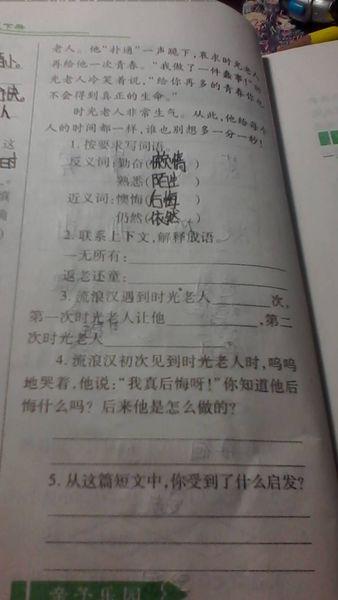 下册
老人。他“扑通”一声跪下,哀求时光老人
再给他一次青春。“我做了一件蠢事!”时
光老人冷笑着说,“给你再多的青春你也
不会得到真正的生命。”
时光老人非常生气。从此,他给每个
人的时间都一样,谁也别想多一分一秒!
1. 按要求写词语。
反义词:勤奋(懒惰)
熟悉(陌生)
近义词:懊悔(后悔)
仍然(依然)
2. 联系上下文,解释成语。
一无所有:
返老还童:
3. 流浪汉遇到时光老人 次。
第一次时光老人让他 ,第二
次时光老人 。
4. 流浪汉初次见到时光老人时,呜呜
地哭着,他说:“我真后悔呀!”你知道他后
悔什么吗?后来他是怎么做的?
5. 从这篇短文中,你受到了什么启发?
亲子乐园